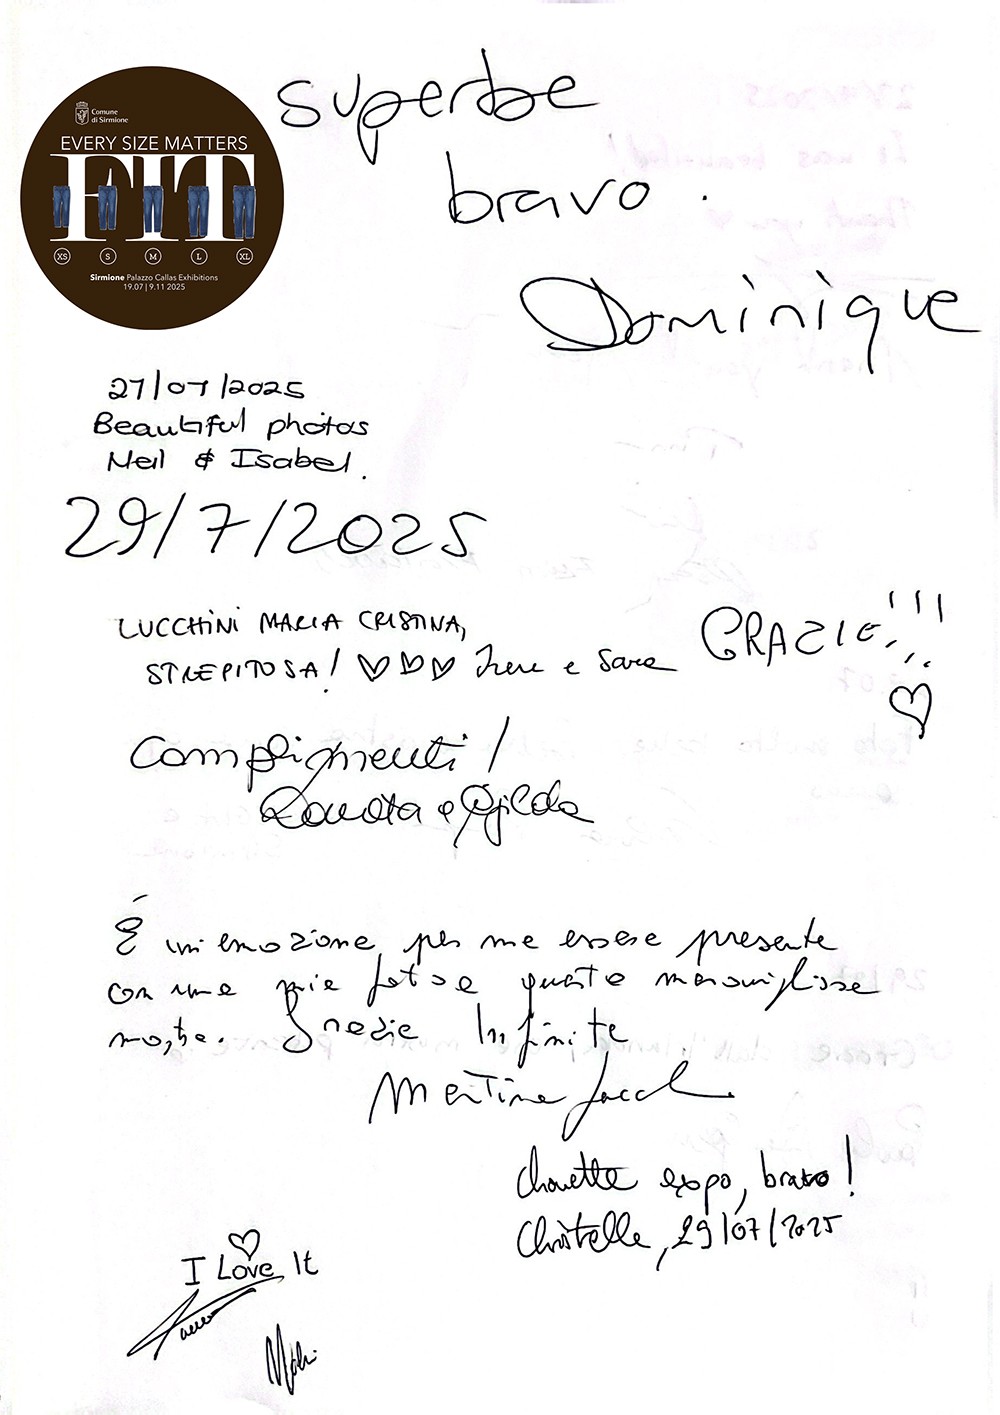 Comune
di Sirmione
EVERY SIZE MATTERS
FIT
XS S M L XL
Sirmione Palazzo Callas Exhibitions
19.07 | 9.11 2025
superbe
bravo.
Dominique
27/07/2025
Beautiful photos
Neil & Isabel.
29/7/2025
LUCCHINI MARIA CRISTINA,
STREPITOSA! Irene e Sara
GRAZIE!!!
Complimenti!
Renata e Gilda
É un emozione per me essere presente
con una mia foto a questa meravigliosa
mostra. Grazie Infinite
Martina
Chouette expo, bravo!
Christelle, 29/07/2025
I Love It